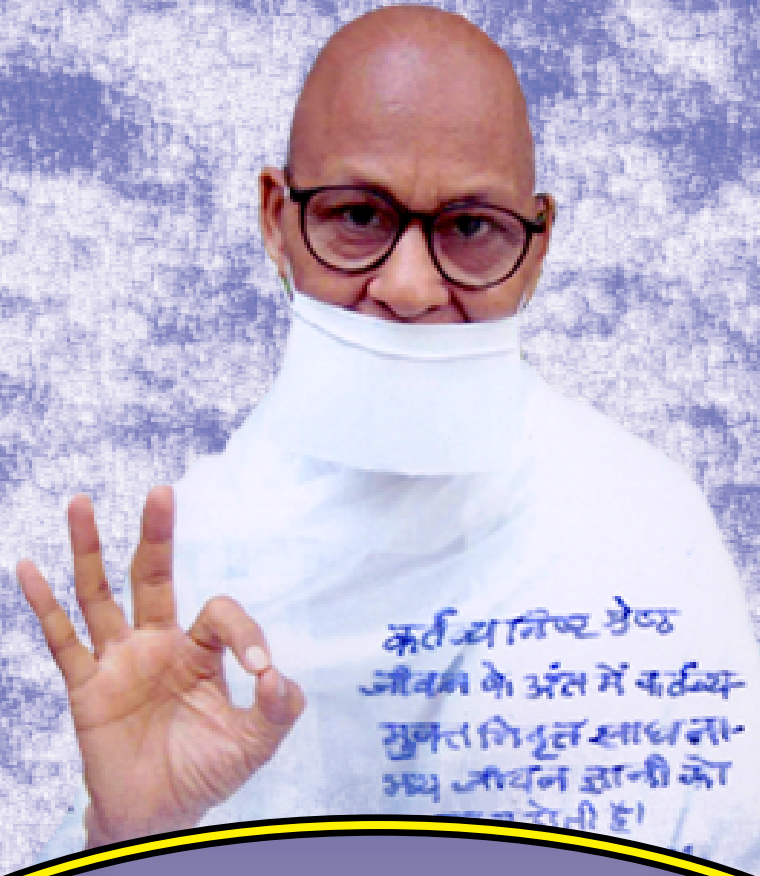 कर्तव्य निष्ठ श्रेष्ठ
जीवन के अंत में कर्तव्य-
मुक्त निवृत साधना-
मय जीवन ज्ञानी को
होती है।